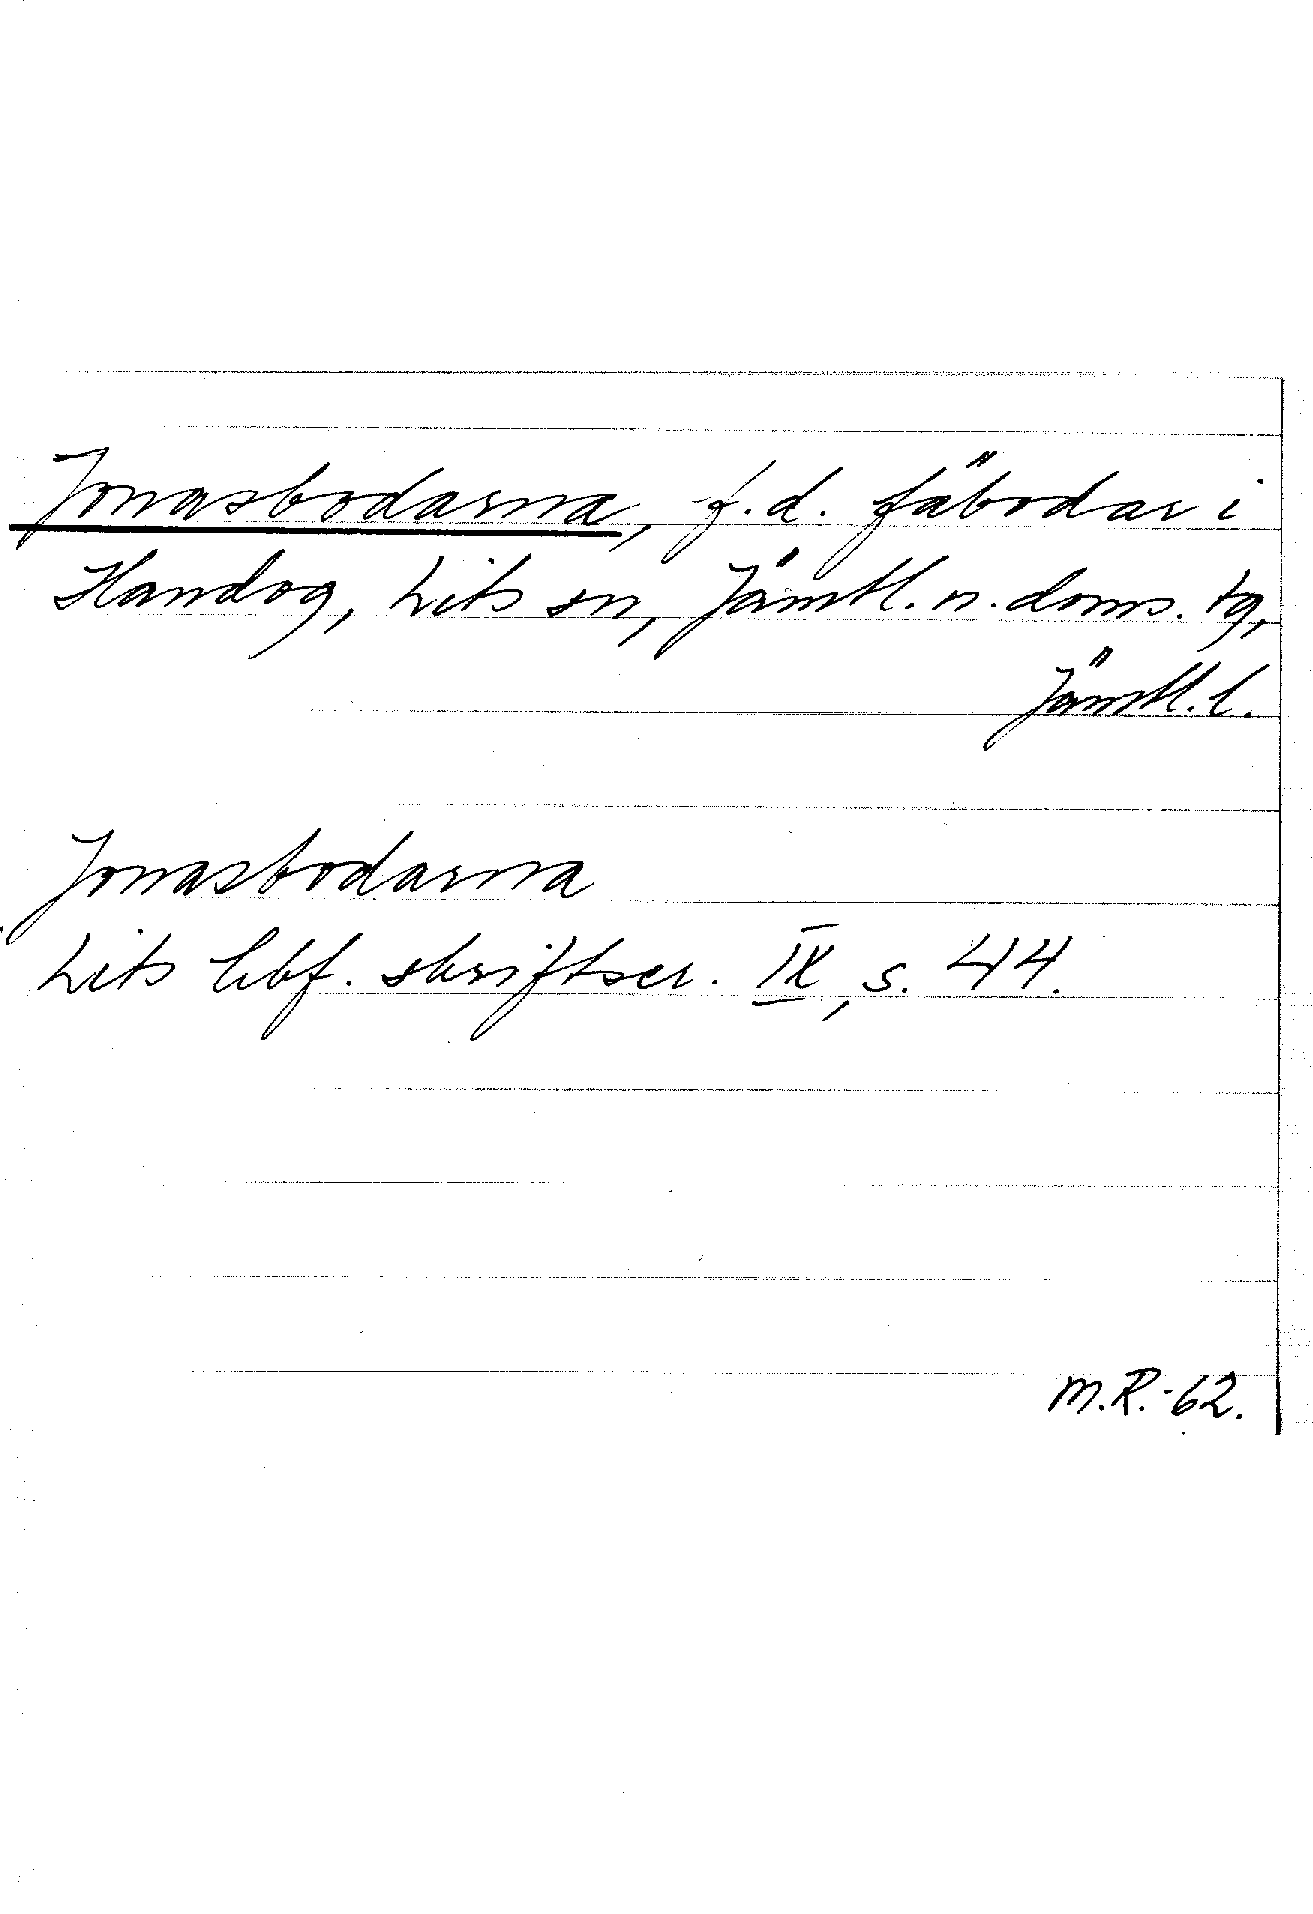 Jonasbodarna, f.d. fäbodar i
Handog, Lits sn, Jämtl. n. doms. tg,
Jämtl. l.
Jonasbodarna
Lits hbf. skriftser. IX, s. 44.
M.R.-62.